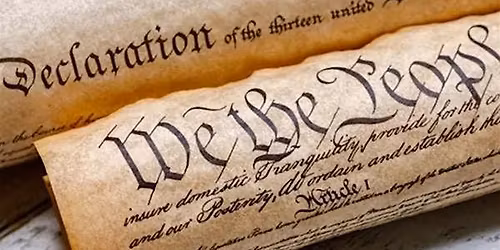 Declaration of the thirteen united
We the Peop
insure domestic Tranquility, provide for the co
and our Posterity, do ordain and establish this
Article I